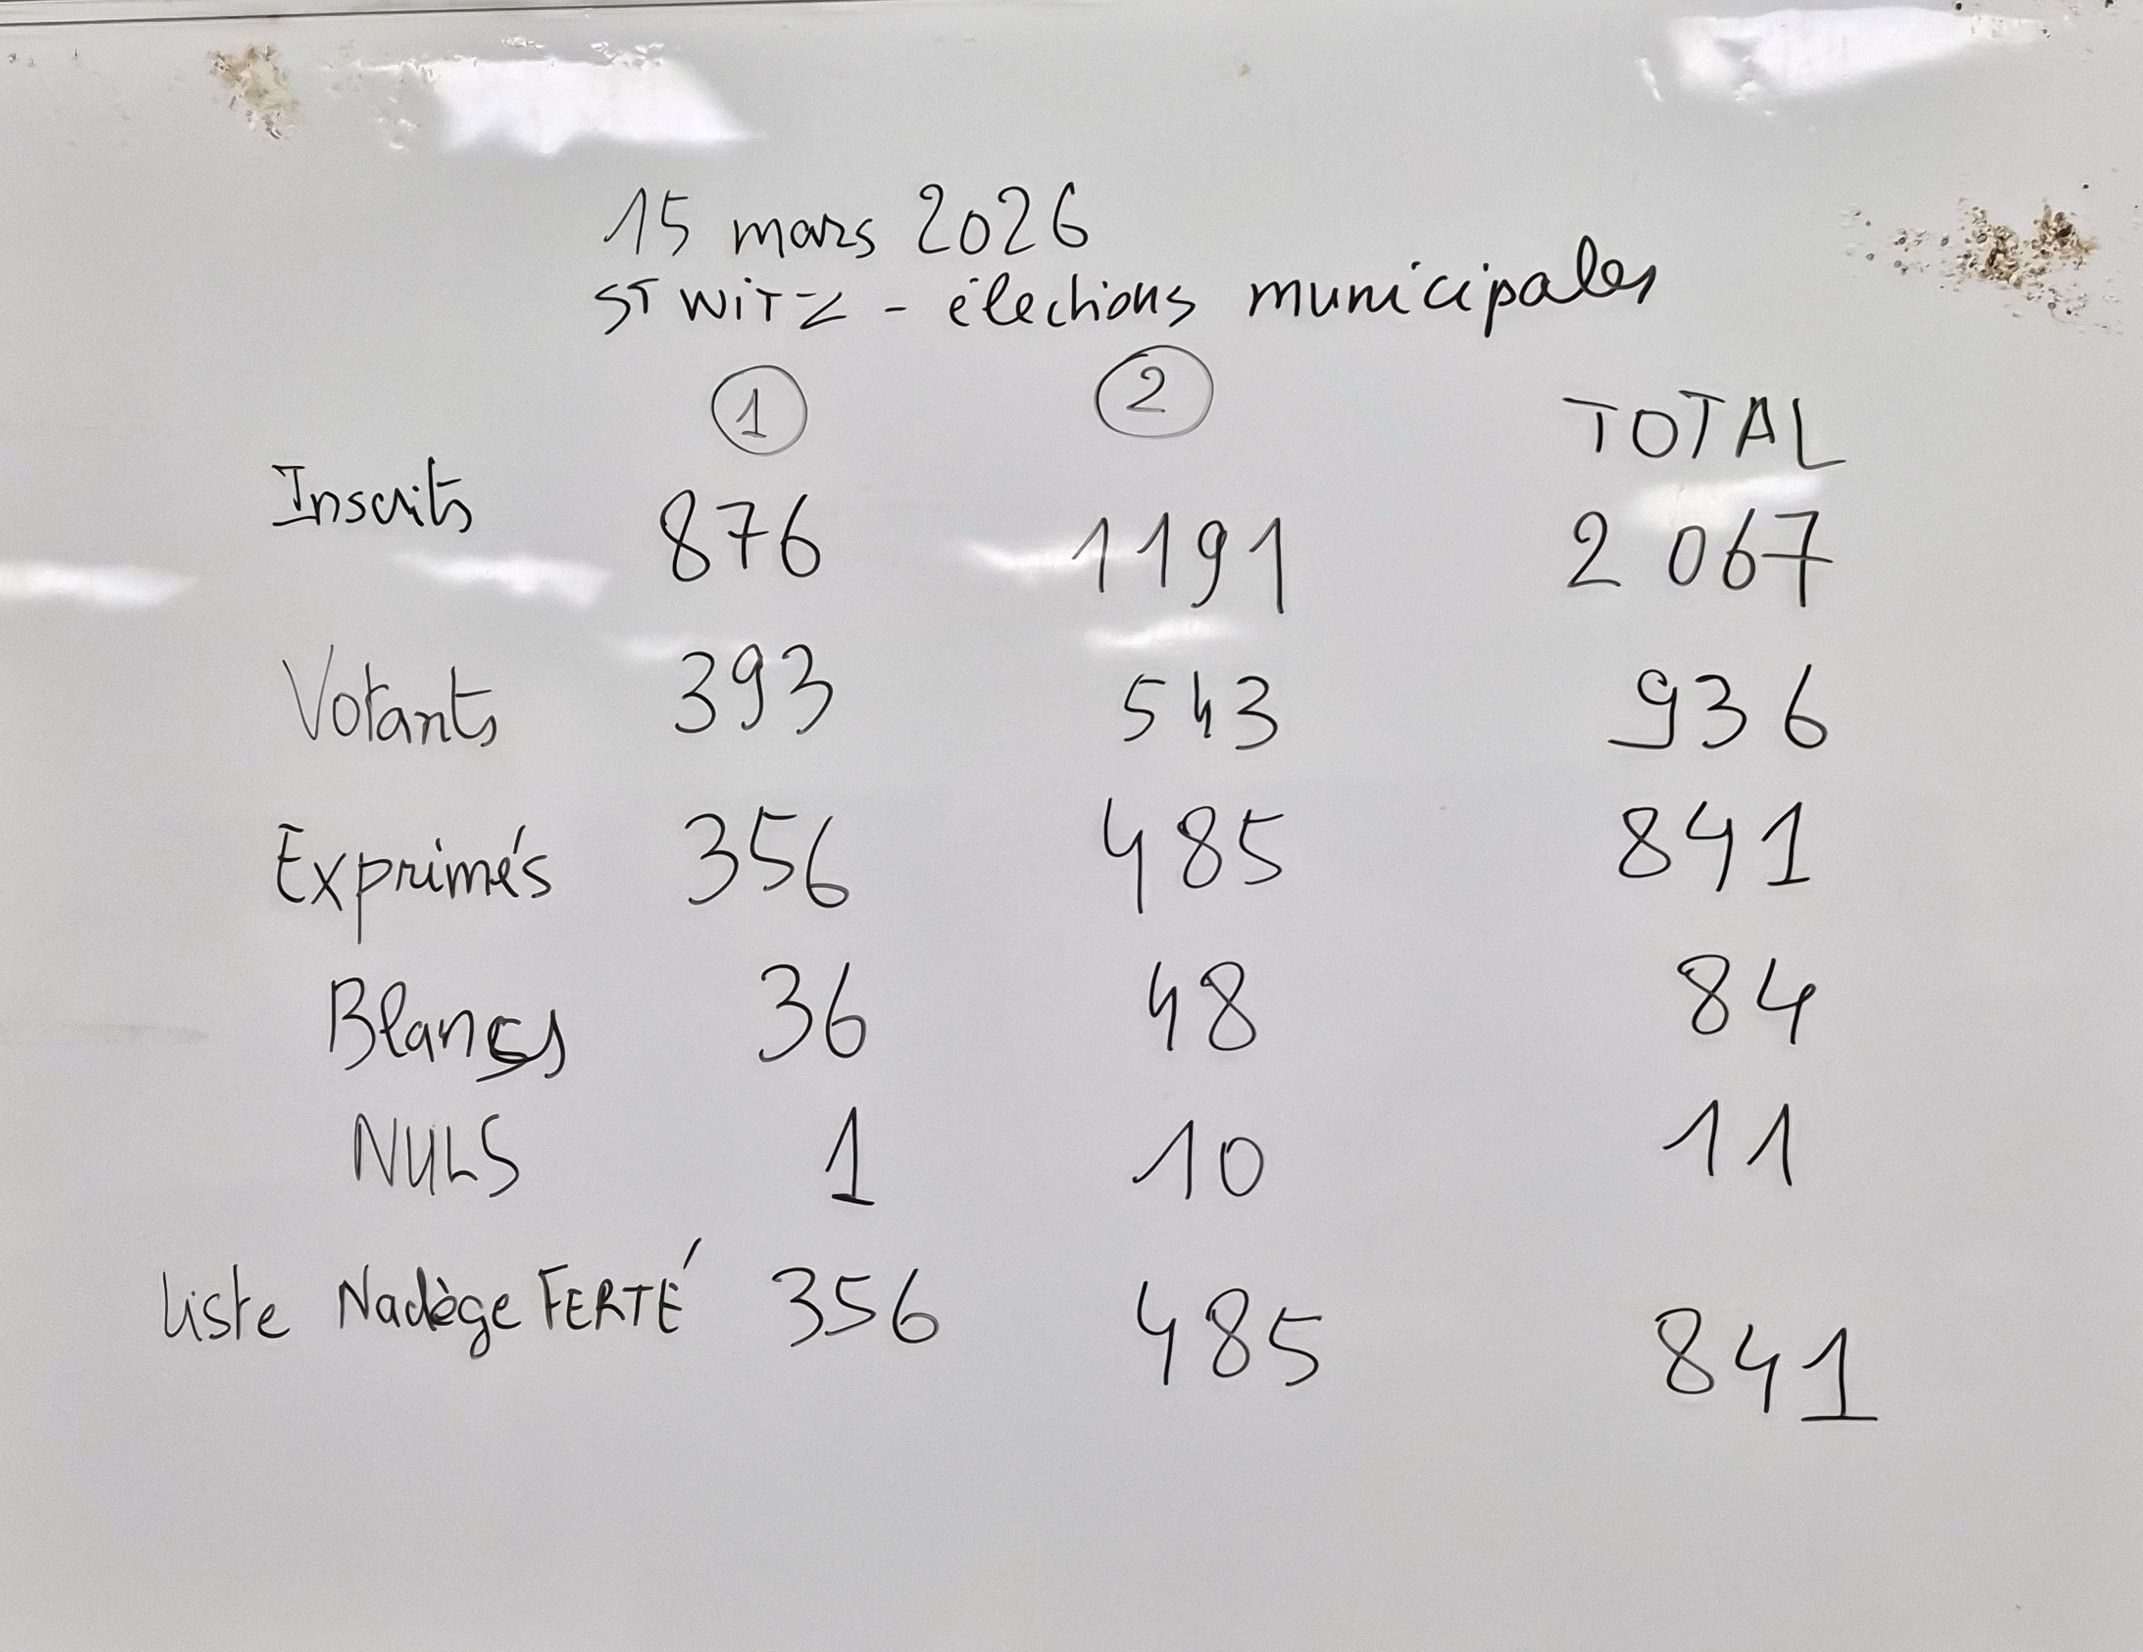 15 mars 2026
ST WITZ - élections municipales
1 2 TOTAL
Inscrits 876 1191 2 067
Votants 393 543 936
Exprimés 356 485 841
Blancs 36 48 84
NULS 1 10 11
liste Nadège FERTÉ 356 485 841